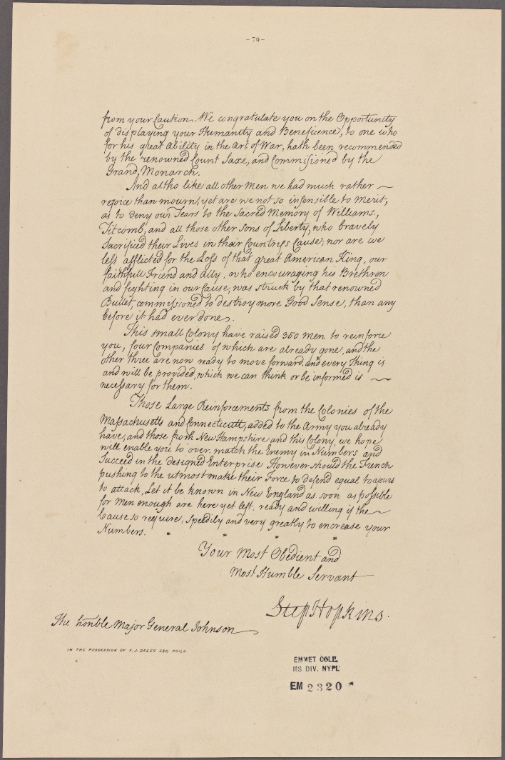 -70-
from your Caution. We congratulate you on the Opportunity
of displaying your Humanity and Beneficence, to one who
for his great Ability in the Art of War, hath been recommended
by the renowned Count Saxe, and Commissioned by the
Grand Monarch.
And altho like all other Men we had much rather
rejoice than mourn, yet are we not so insensible to Merit,
as to Deny our Tears to the Sacred Memory of Williams,
Titcomb, and all those other Sons of Liberty, who bravely
Sacrificed their Lives in their Countrys Cause; nor are we
less afflicted for the Loss of that great American King, our
faithfull Friend and Ally, who encouraging his Brethren
and fighting in our Cause, was struck by that renowned
Bullet, commissioned to destroy more Good Sense, than any
before it had ever done.
This small Colony have raised 350 Men to reinforce
you, four Companies of which are already gone, and the
other three are now ready to move forward and every thing is
and will be provided which we can think or be informed is
necessary for them.
Those Large Reinforcements from the Colonies of the
Massachusetts and Connecticutt, added to the Army you already
have, and those from New Hampshire and this Colony, we hope
will enable you to over match the Enemy in Numbers and
Succeed in the designed Enterprise However should the French
pushing to the utmost make their Force to defend equal to ours
to attack, Let it be known in New England as soon as possible
for Men enough are here yet left, ready and willing if the
Cause so require, Speedily and very greatly to encrease your
Numbers. " " " "
Your Most Obedient and
Most Humble Servant
Step Hopkins.
The honble Major General Johnson
IN THE POSSESSION OF F.J. DREER ESQ. PHILA.
EMMET COLL.
MS DIV. NYPL
EM 2320